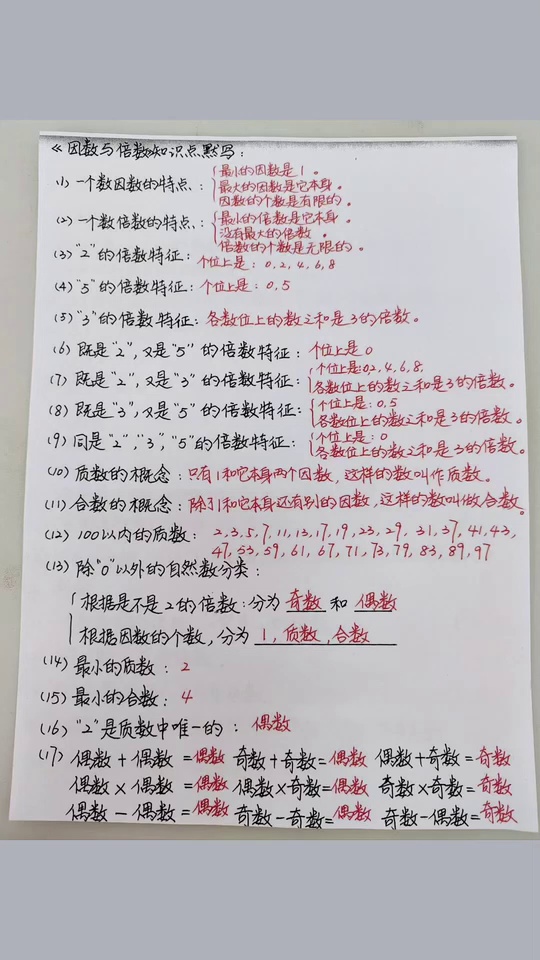 《因数与倍数知识点默写:
(1) 一个数因数的特点: 最小的因数是1。
最大的因数是它本身。
因数的个数是有限的。
(2) 一个数倍数的特点: 最小的倍数是它本身。
没有最大的倍数。
倍数的个数是无限的。
(3) "2"的倍数特征: 个位上是: 0,2,4,6,8
(4) "5"的倍数特征: 个位上是: 0,5
(5) "3"的倍数特征: 各数位上的数之和是3的倍数。
(6) 既是"2",又是"5"的倍数特征: 个位上是0
(7) 既是"2",又是"3"的倍数特征: 个位上是:0,2,4,6,8,
各数位上的数之和是3的倍数。
(8) 既是"3",又是"5"的倍数特征: 个位上是: 0,5
各数位上的数之和是3的倍数。
(9) 同是"2","3","5"的倍数特征: 个位上是: 0
各数位上的数之和是3的倍数。
(10) 质数的概念: 只有1和它本身两个因数,这样的数叫作质数。
(11) 合数的概念: 除了1和它本身还有别的因数,这样的数叫做合数。
(12) 100以内的质数: 2,3,5,7,11,13,17,19,23,29, 31,37,41,43,
47,53,59,61,67,71,73,79,83,89,97
(13) 除"0"以外的自然数分类:
根据是不是2的倍数:分为 奇数 和 偶数
根据因数的个数,分为 1,质数,合数
(14) 最小的质数: 2
(15) 最小的合数: 4
(16) "2"是质数中唯一的: 偶数
(17) 偶数+偶数=偶数 奇数+奇数=偶数 偶数+奇数=奇数
偶数×偶数=偶数 偶数×奇数=偶数 奇数×奇数=奇数
偶数-偶数=偶数 奇数-奇数=偶数 奇数-偶数=奇数